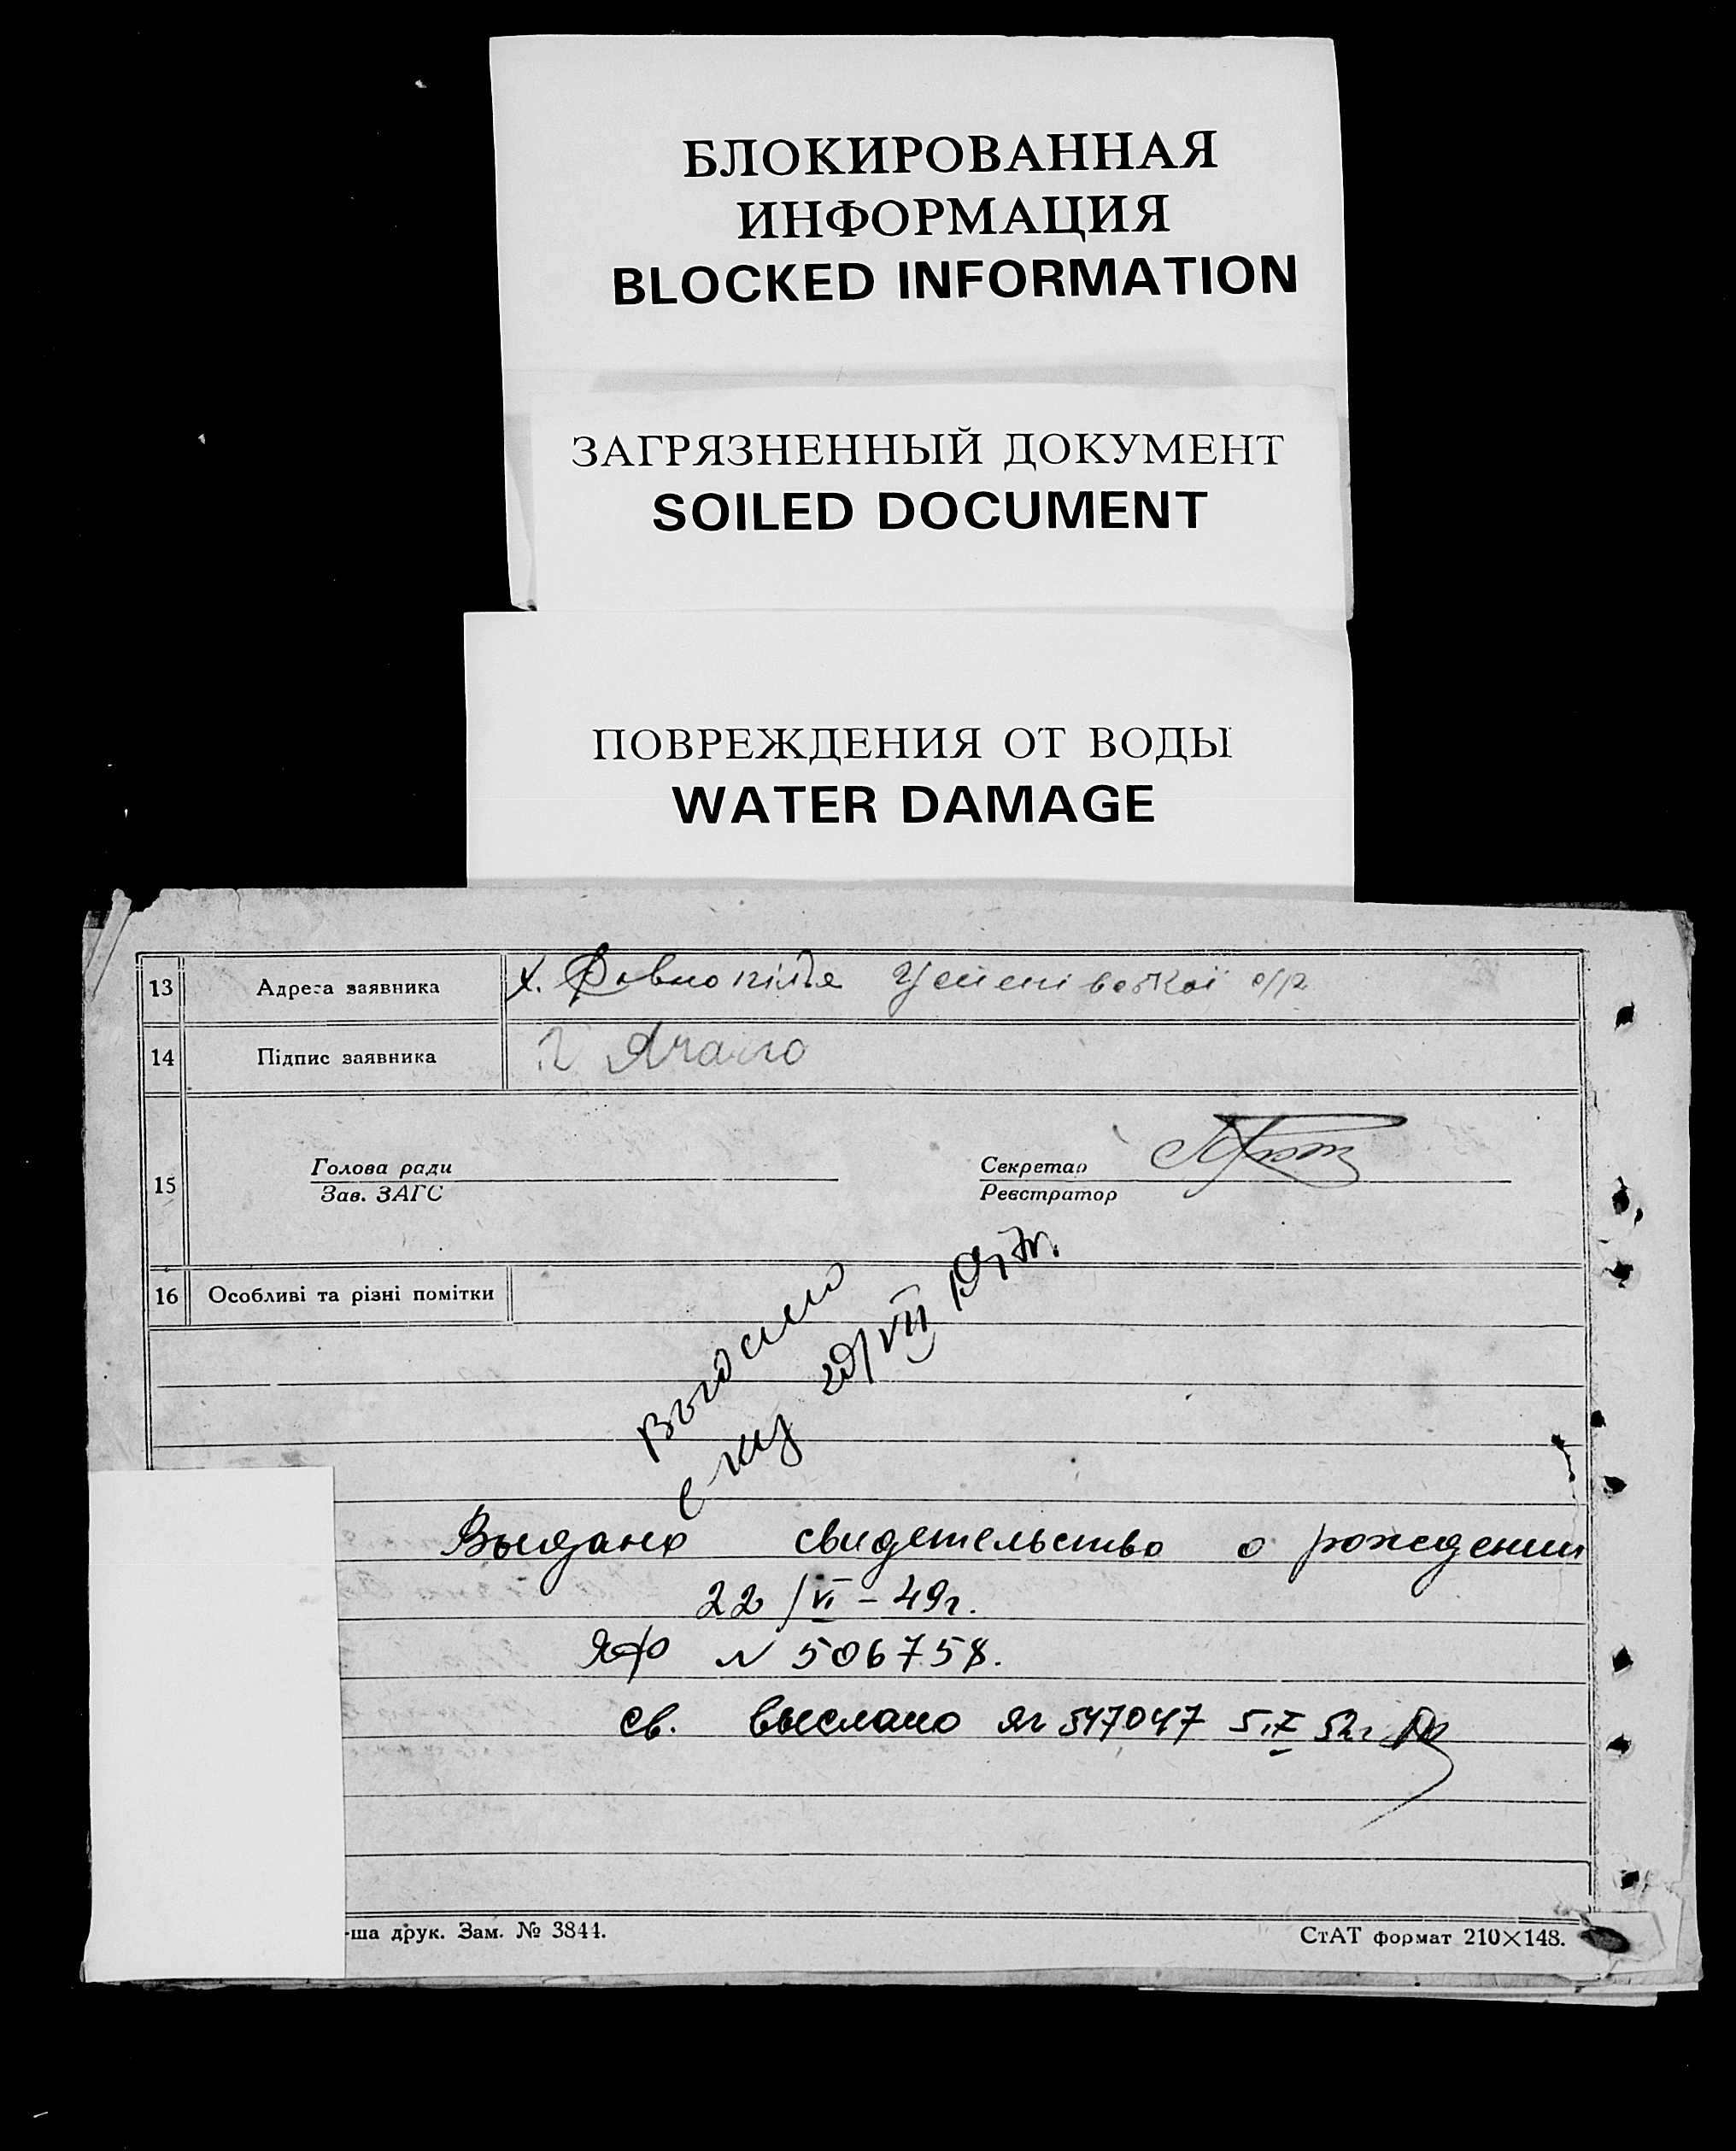 БЛОКИРОВАННАЯ
ИНФОРМАЦИЯ
BLOCKED INFORMATION
ЗАГРЯЗНЕННЫЙ ДОКУМЕНТ
SOILED DOCUMENT
ПОВРЕЖДЕНИЯ ОТ ВОДЫ
WATER DAMAGE
13 Адреса заявника х. с/р
14 Підпис заявника
15 Голова ради Секретар
Зав. ЗАГС Реєстратор
16 Особливі та різні помітки
Выдано свидетельство о рождении
22/VI – 49г.
N 506758.
св. выслано 547047
-ша друк. Зам. № 3844. СтАТ формат 210×148.